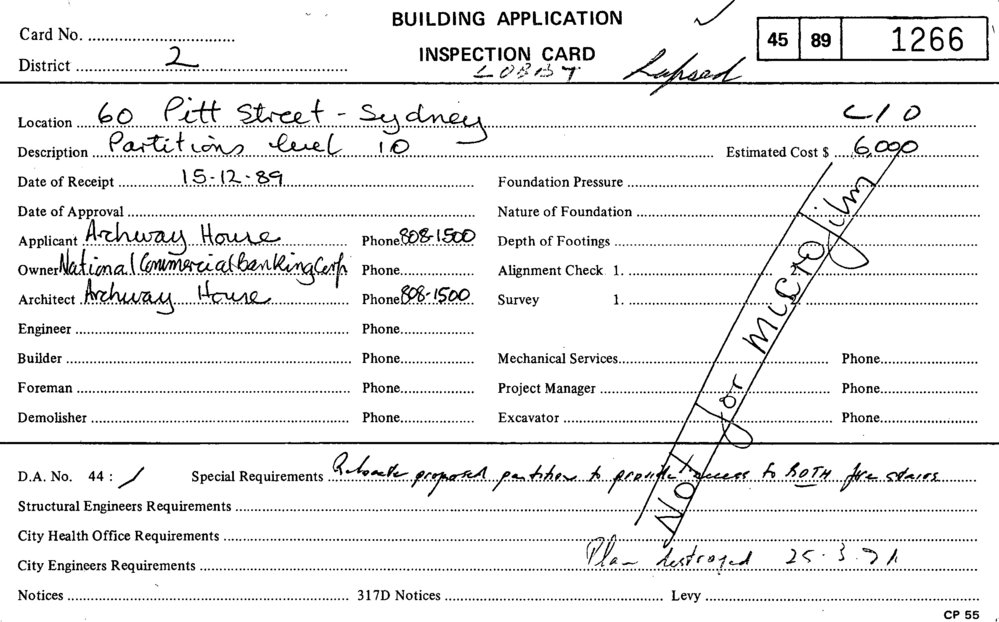 BUILDING APPLICATION
Card No.
45 89 1266
District 2
INSPECTION CARD
Lapsed
Location 60 Pitt Street - Sydney C/O
Description Partitions level 10 Estimated Cost $ 6,000
Date of Receipt 15-12-89 Foundation Pressure
Date of Approval Nature of Foundation
Applicant Archway House Phone 808-1500 Depth of Footings
Owner National Commercial Banking Corp Phone Alignment Check 1.
Architect Archway House Phone 808-1500 Survey 1.
Engineer Phone
Builder Phone Mechanical Services Phone
Foreman Phone Project Manager Phone
Demolisher Phone Excavator Phone
Not for Microfilm
D.A. No. 44 : / Special Requirements Relocate proposed partition to provide access to BOTH fire stairs
Structural Engineers Requirements
City Health Office Requirements
Plan destroyed 25.3.
City Engineers Requirements
Notices 317D Notices Levy
CP 55